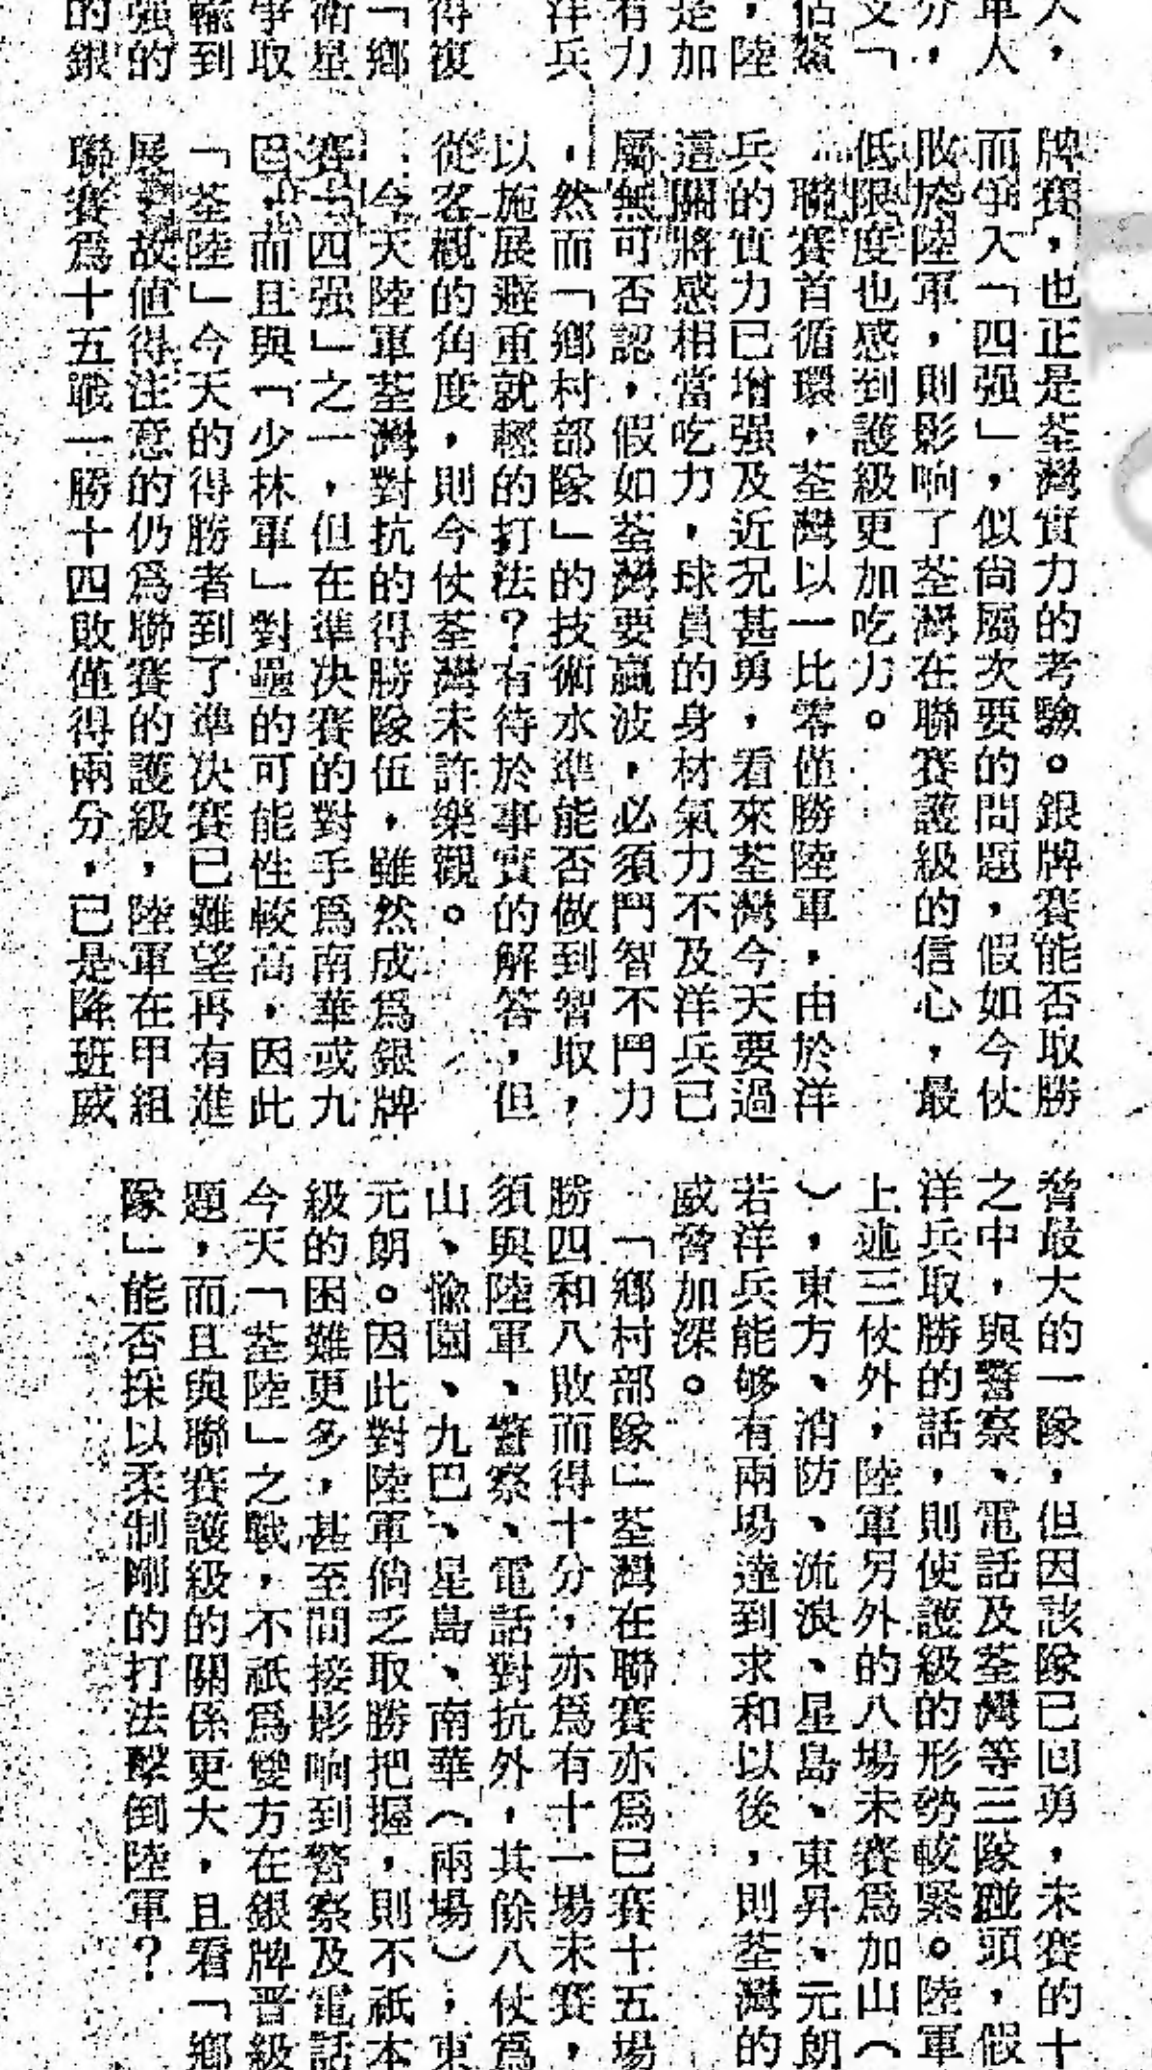 人，
軍人
分，
文「
估鯗
，陸
是加
有力
洋兵
得復
「鄉
衛星
爭取
輸到
强的
的銀
牌賽，也正是荃灣實力的考驗。銀牌賽能否取勝
而爭入「四强」，似尙屬次要的問題，假如今仗
敗於陸軍，則影响了荃灣在聯賽護級的信心，最
低限度也感到護級更加吃力。
聯賽首循環，荃灣以一比零僅勝陸軍，由於洋
兵的實力已增强及近況甚勇，看來荃灣今天要過
這關將感相當吃力，球員的身材氣力不及洋兵已
屬無可否認，假如荃灣要贏波，必須鬥智不鬥力
，然而「鄉村部隊」的技術水準能否做到智取，
以施展避重就輕的打法？有待於事實的解答，但
從客觀的角度，則今仗荃灣未許樂觀。
今天陸軍荃灣對抗的得勝隊伍，雖然成爲銀牌
賽「四强」之一，但在準决賽的對手爲南華或九
巴，而且與「少林軍」對壘的可能性較高，因此
「荃陸」今天的得勝者到了準决賽已難望再有進
展，故值得注意的仍爲聯賽的護級，陸軍在甲組
聯賽爲十五戰一勝十四敗僅得兩分，已是降班威
脅最大的一隊，但因該隊已回勇，未賽的十
之中，與警察、電話及荃灣等三隊碰頭，假
洋兵取勝的話，則使護級的形勢較緊。陸軍
上述三仗外，陸軍另外的八場未賽爲加山（
），東方、消防、流浪、星島、東昇、元朗
若洋兵能够有兩場達到求和以後，則荃灣的
威脅加深。
「鄉村部隊」荃灣在聯賽亦爲已賽十五場
勝四和八敗而得十分，亦爲有十一場未賽，
須與陸軍、警察、電話對抗外，其餘八仗爲
山、愉園、九巴、星島、南華（兩場），東
元朗。因此對陸軍倘乏取勝把握，則不祇本
級的困難更多，甚至間接影响到警察及電話
今天「荃陸」之戰，不祇爲雙方在銀牌晋級
題，而且與聯賽護級的關係更大，且看「鄉
隊」能否採以柔制剛的打法擊倒陸軍？